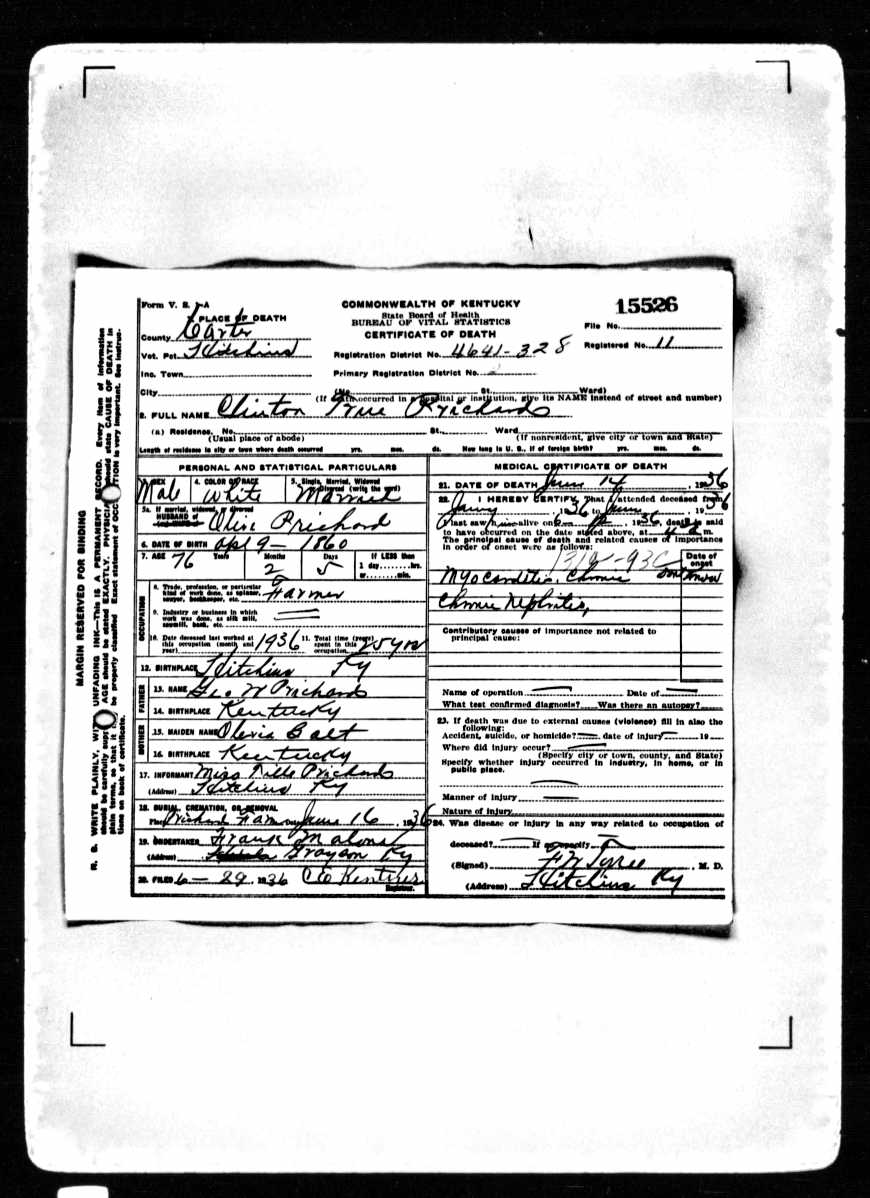 Form V. S. 1-A
COMMONWEALTH OF KENTUCKY
State Board of Health
BUREAU OF VITAL STATISTICS
CERTIFICATE OF DEATH
15526
File No.
Registered No. 11
1 PLACE OF DEATH
County Carter
Vot. Pct. Hitchins
Registration District No. 4641-328
Inc. Town
Primary Registration District No.
City (No. St. Ward)
(If death occurred in a hospital or institution, give its NAME instead of street and number)
2. FULL NAME Clinton True Prichard
(a) Residence. No. St. Ward
(Usual place of abode) (If nonresident, give city or town and State)
Length of residence in city or town where death occurred yrs. mos. ds. How long in U. S., if of foreign birth? yrs. mos. ds.
PERSONAL AND STATISTICAL PARTICULARS
3. SEX Male
4. COLOR OR RACE White
5. Single, Married, Widowed or Divorced (write the word) Married
5a. If married, widowed, or divorced
HUSBAND of
(or) WIFE of Olive Prichard
6. DATE OF BIRTH Apl 9- 1860
7. AGE 76 Years 2 Months 5 Days If LESS than
1 day........hrs.
or........min.
OCCUPATION
8. Trade, profession, or particular
kind of work done, as spinner,
sawyer, bookkeeper, etc. Farmer
9. Industry or business in which
work was done, as silk mill,
sawmill, bank, etc.
10. Date deceased last worked at
this occupation (month and
year) 1936
11. Total time (years)
spent in this
occupation 25 yrs
12. BIRTHPLACE Hitchins Ky
FATHER
13. NAME Geo W Prichard
14. BIRTHPLACE Kentucky
MOTHER
15. MAIDEN NAME Olevia Galt
16. BIRTHPLACE Kentucky
17. INFORMANT Miss Prichard
(Address) Hitchins Ky
18. BURIAL, CREMATION, OR REMOVAL
Place Prichard Farm Date June 16, 1936
19. UNDERTAKER Frank Malone
(Address) Grayson Ky
20. FILED 6-29, 1936
Registrar.
MEDICAL CERTIFICATE OF DEATH
21. DATE OF DEATH June 14, 1936
22. I HEREBY CERTIFY, That I attended deceased from
Jany, 1936 to June, 1936
I last saw him alive on, 1936, death is said
to have occurred on the date stated above, at 4 a m.
The principal cause of death and related causes of importance
in order of onset were as follows:
Date of
onset
Myocarditis, Chronic dont know
Chronic Nephritis,
Contributory causes of importance not related to
principal cause:
Name of operation Date of
What test confirmed diagnosis? Was there an autopsy?
23. If death was due to external causes (violence) fill in also the
following:
Accident, suicide, or homicide? date of injury 19
Where did injury occur?
(Specify city or town, county, and State)
Specify whether injury occurred in industry, in home, or in
public place.
Manner of injury
Nature of injury
24. Was disease or injury in any way related to occupation of
deceased? If so, specify
(Signed), M. D.
(Address) Hitchins Ky
MARGIN RESERVED FOR BINDING
N. B. WRITE PLAINLY, WITH UNFADING INK—This is A PERMANENT RECORD. Every item of information
should be carefully supplied. AGE should be stated EXACTLY. PHYSICIANS should state CAUSE OF DEATH in
plain terms, so that it may be properly classified. Exact statement of OCCUPATION is very important. See instruc-
tions on back of certificate.